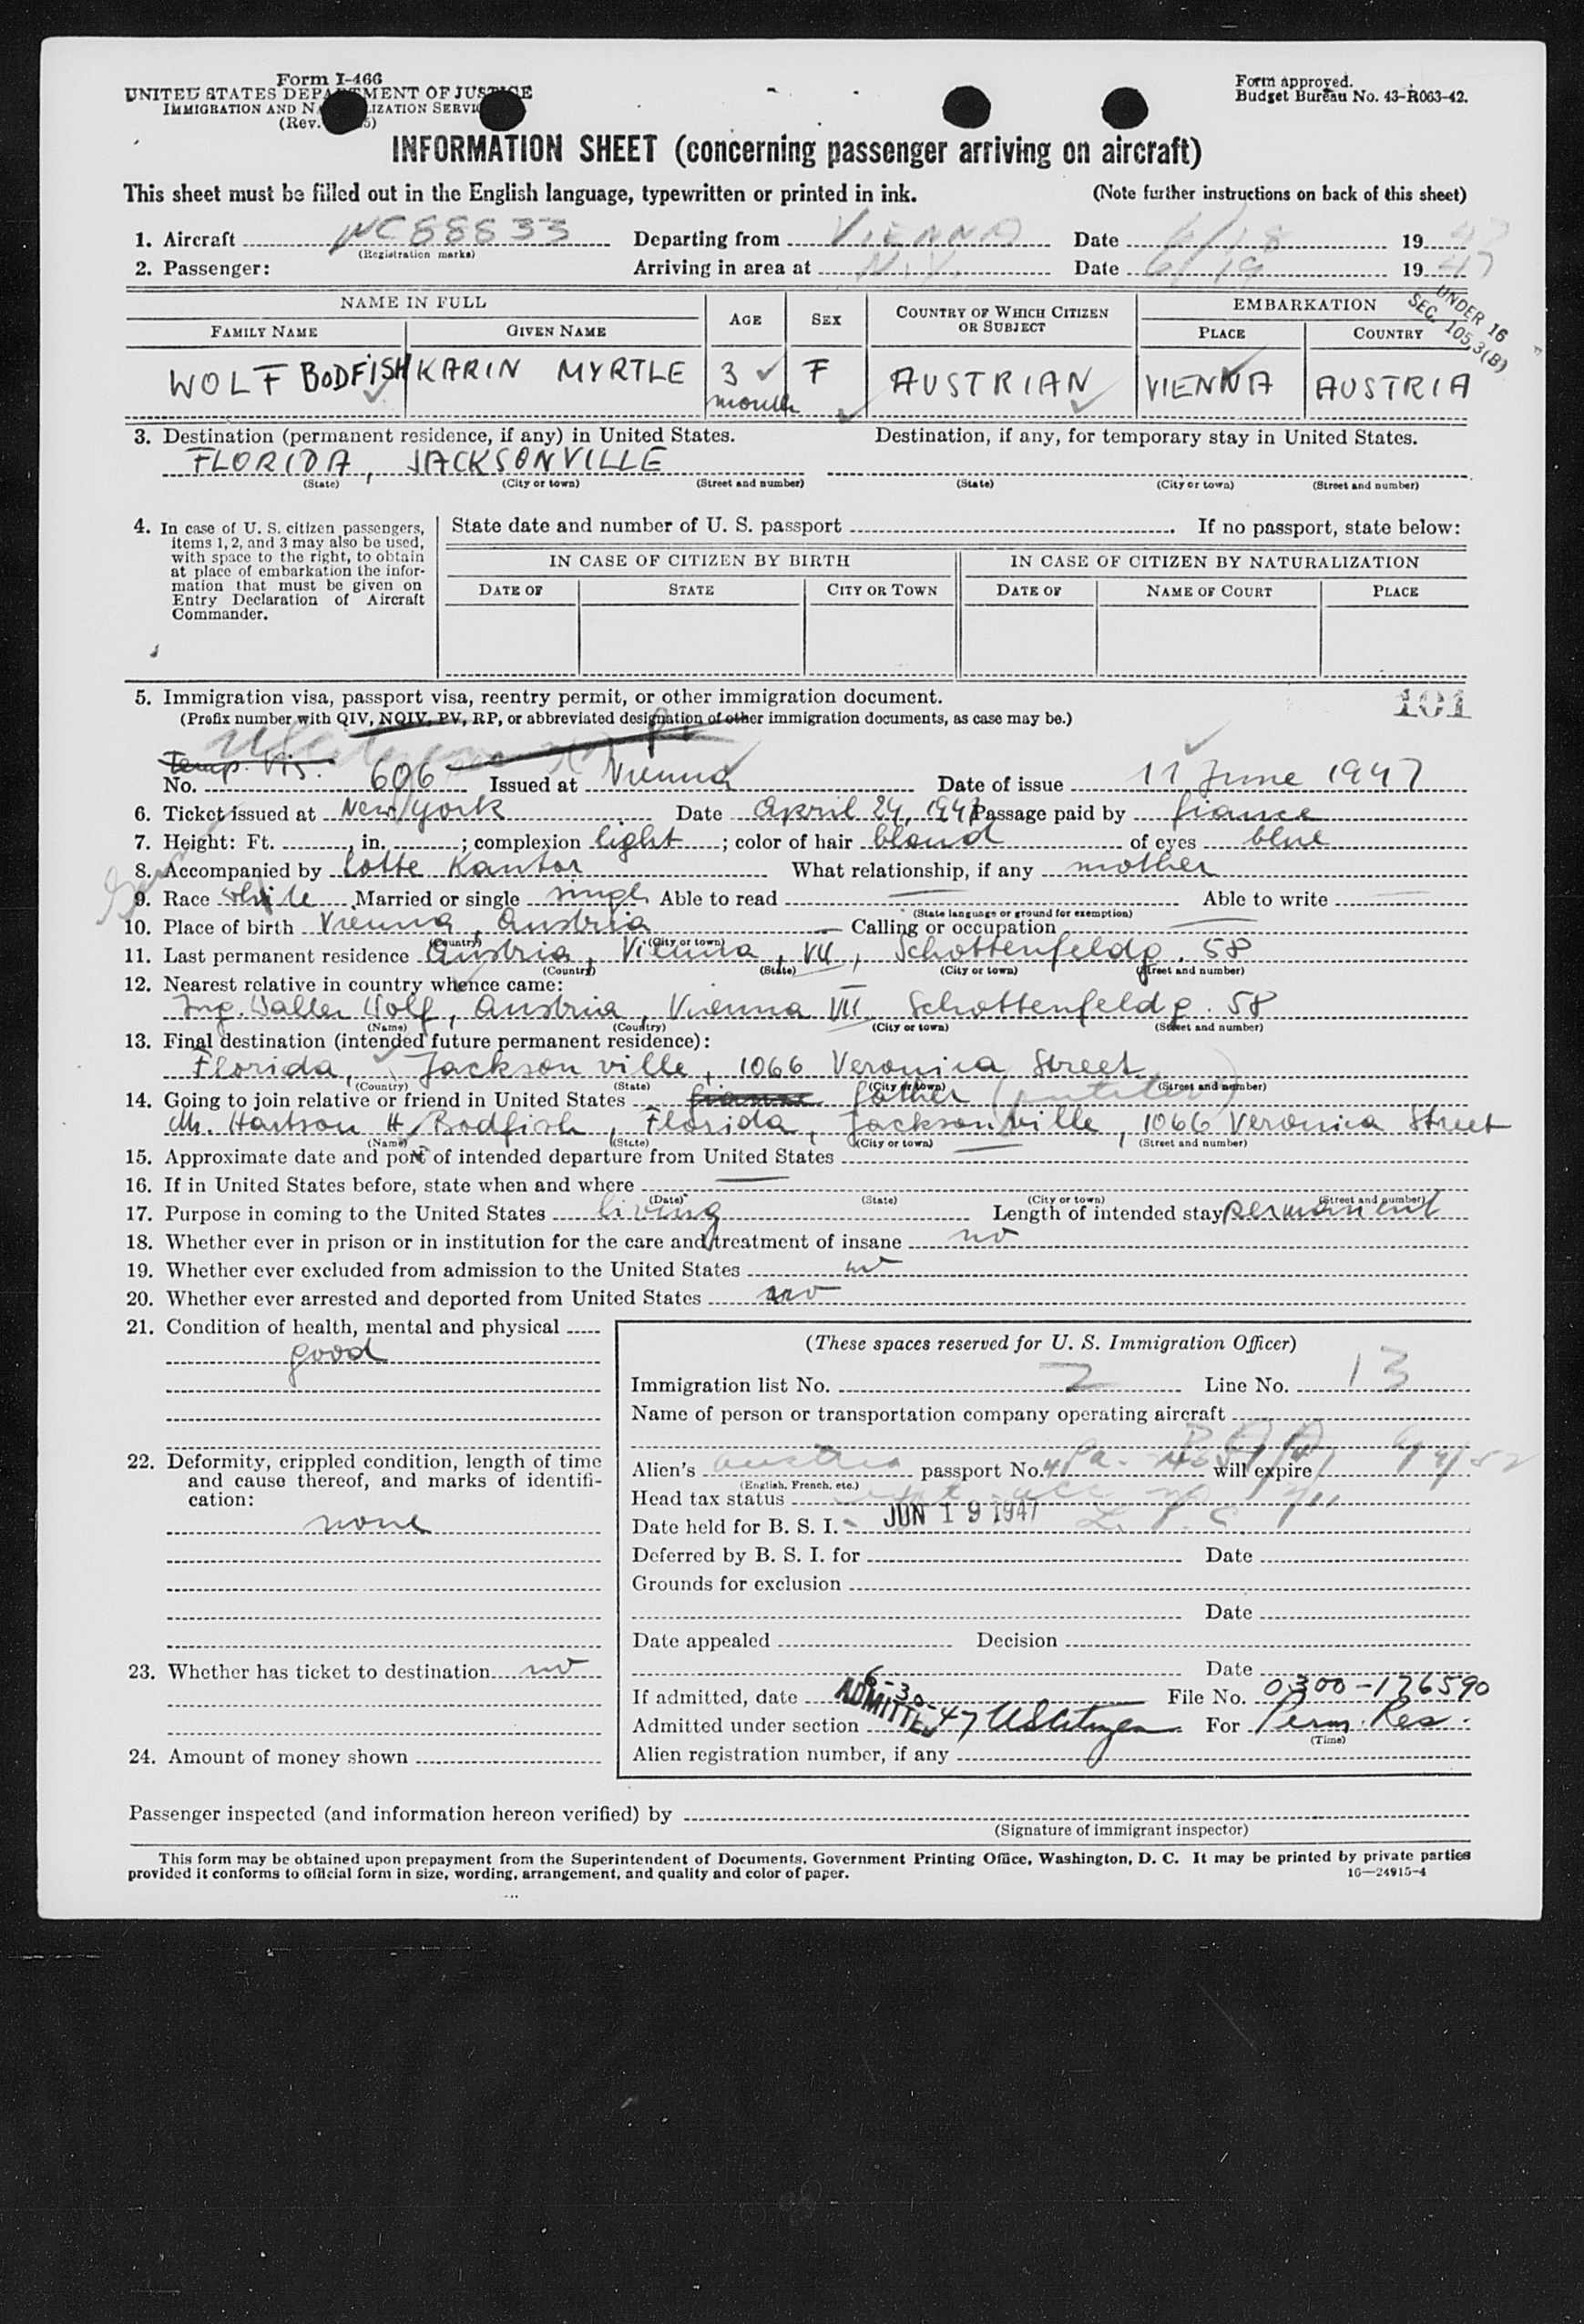 Form I-466
UNITED STATES DEPARTMENT OF JUSTICE
IMMIGRATION AND NATURALIZATION SERVICE
(Rev. 5)
Form approved.
Budget Bureau No. 43-R063-42.
INFORMATION SHEET (concerning passenger arriving on aircraft)
This sheet must be filled out in the English language, typewritten or printed in ink. (Note further instructions on back of this sheet)
1. Aircraft NC88833 Departing from VIENNA Date 6/18 1947
(Registration marks)
2. Passenger: Arriving in area at N.Y. Date 6/19 1947
UNDER 16
SEC. 105.3(B)
NAME IN FULL AGE SEX COUNTRY OF WHICH CITIZEN OR SUBJECT EMBARKATION
FAMILY NAME GIVEN NAME PLACE COUNTRY
WOLF BODFISH KARIN MYRTLE 3 month F AUSTRIAN VIENNA AUSTRIA
3. Destination (permanent residence, if any) in United States. Destination, if any, for temporary stay in United States.
FLORIDA, JACKSONVILLE
(State) (City or town) (Street and number) (State) (City or town) (Street and number)
4. In case of U. S. citizen passengers, items 1, 2, and 3 may also be used, with space to the right, to obtain at place of embarkation the information that must be given on Entry Declaration of Aircraft Commander.
State date and number of U. S. passport If no passport, state below:
IN CASE OF CITIZEN BY BIRTH IN CASE OF CITIZEN BY NATURALIZATION
DATE OF STATE CITY OR TOWN DATE OF NAME OF COURT PLACE
5. Immigration visa, passport visa, reentry permit, or other immigration document. 101
(Prefix number with QIV, NQIV, PV, RP, or abbreviated designation of other immigration documents, as case may be.)
Temp. Vis.
No. 606 Issued at Vienna Date of issue 11 June 1947
6. Ticket issued at New York Date April 24, 1947 Passage paid by fiance
7. Height: Ft. , in. ; complexion light ; color of hair blond of eyes blue
8. Accompanied by Lotte Kantor What relationship, if any mother
9. Race white Married or single single Able to read Able to write
(State language or ground for exemption)
10. Place of birth Vienna, Austria Calling or occupation
(Country) (City or town)
11. Last permanent residence Austria, Vienna, VII, Schottenfeldg. 58
(Country) (State) (City or town) (Street and number)
12. Nearest relative in country whence came:
Ing. Walter Wolf, Austria, Vienna VII. Schottenfeldg. 58
(Name) (Country) (City or town) (Street and number)
13. Final destination (intended future permanent residence):
Florida, Jacksonville, 1066 Veronica Street
(Country) (State) (City or town) (Street and number)
14. Going to join relative or friend in United States fiance father
Mr. H. Bodfish, Florida, Jacksonville, 1066 Veronica Street
(Name) (State) (City or town) (Street and number)
15. Approximate date and port of intended departure from United States
16. If in United States before, state when and where
(Date) (State) (City or town) (Street and number)
17. Purpose in coming to the United States living Length of intended stay permanent
18. Whether ever in prison or in institution for the care and treatment of insane no
19. Whether ever excluded from admission to the United States no
20. Whether ever arrested and deported from United States no
21. Condition of health, mental and physical
good
22. Deformity, crippled condition, length of time and cause thereof, and marks of identification:
none
23. Whether has ticket to destination no
24. Amount of money shown
(These spaces reserved for U. S. Immigration Officer)
Immigration list No. 2 Line No. 13
Name of person or transportation company operating aircraft
PAA
Alien's Austria passport No. will expire
(English, French, etc.)
Head tax status
Date held for B. S. I. JUN 19 1947 L. P. C.
Deferred by B. S. I. for Date
Grounds for exclusion
Date
Date appealed Decision
Date
If admitted, date ADMITTED 6-30-47 File No. 0300-176590
Admitted under section US Citizen For Perm. Res.
(Time)
Alien registration number, if any
Passenger inspected (and information hereon verified) by
(Signature of immigrant inspector)
This form may be obtained upon prepayment from the Superintendent of Documents, Government Printing Office, Washington, D. C. It may be printed by private parties
provided it conforms to official form in size, wording, arrangement, and quality and color of paper. 16—24915-4